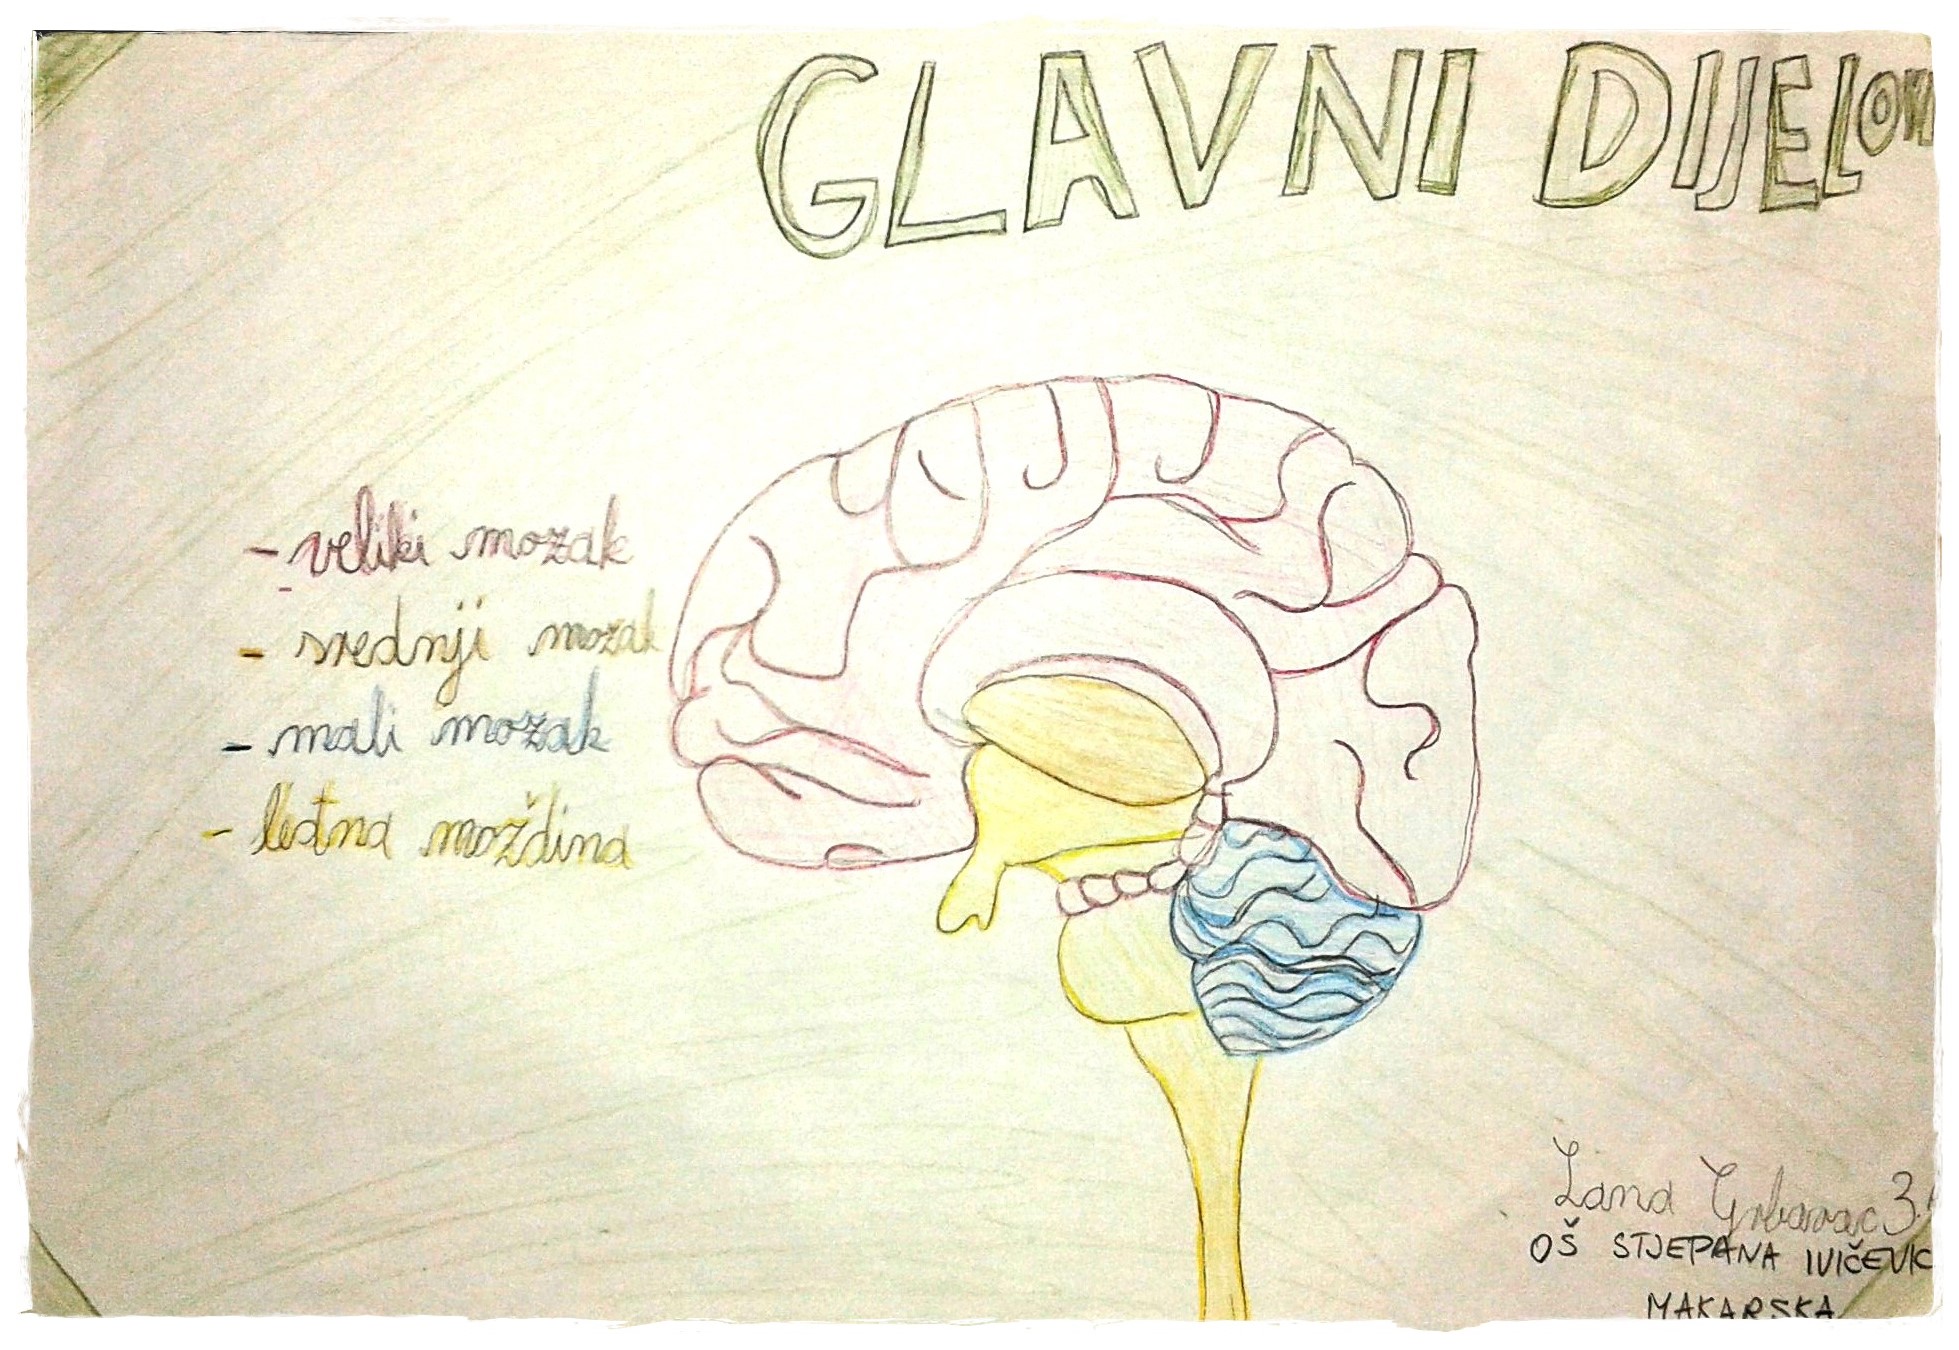 GLAVNI DIJELOVI
- veliki mozak
- srednji mozak
- mali mozak
- leđna moždina
Lana Grbavac 3.
OŠ STJEPANA IVIČEVIĆ
MAKARSKA